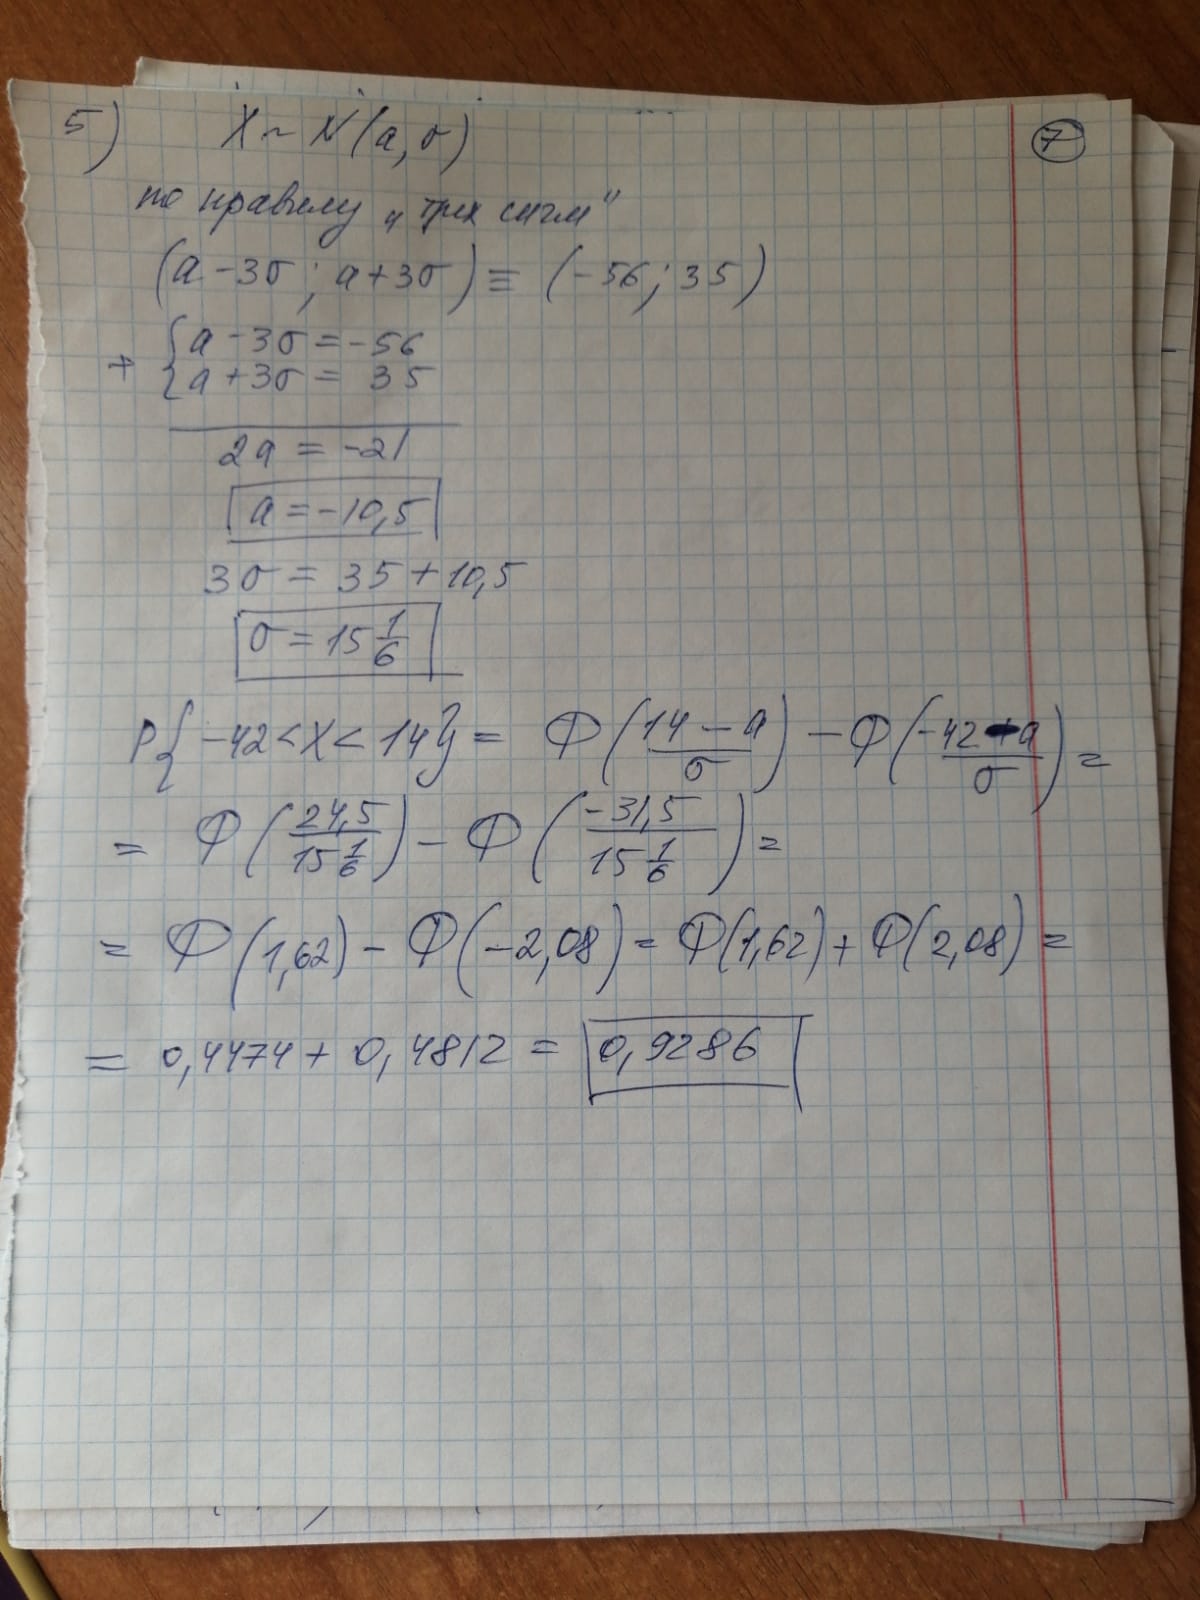 5) X ~ N(a, σ) 7
по правилу „трех сигм"
(a - 3σ; a + 3σ) ≡ (-56; 35)
+ { a - 3σ = -56
{ a + 3σ = 35
2a = -21
a = -10,5
3σ = 35 + 10,5
σ = 15 1/6
P{-42 < X < 14} = Ф((14 - a)/σ) - Ф((-42 - a)/σ) =
= Ф(24,5/(15 1/6)) - Ф(-31,5/(15 1/6)) =
= Ф(1,62) - Ф(-2,08) = Ф(1,62) + Ф(2,08) =
= 0,4474 + 0,4812 = 0,9286